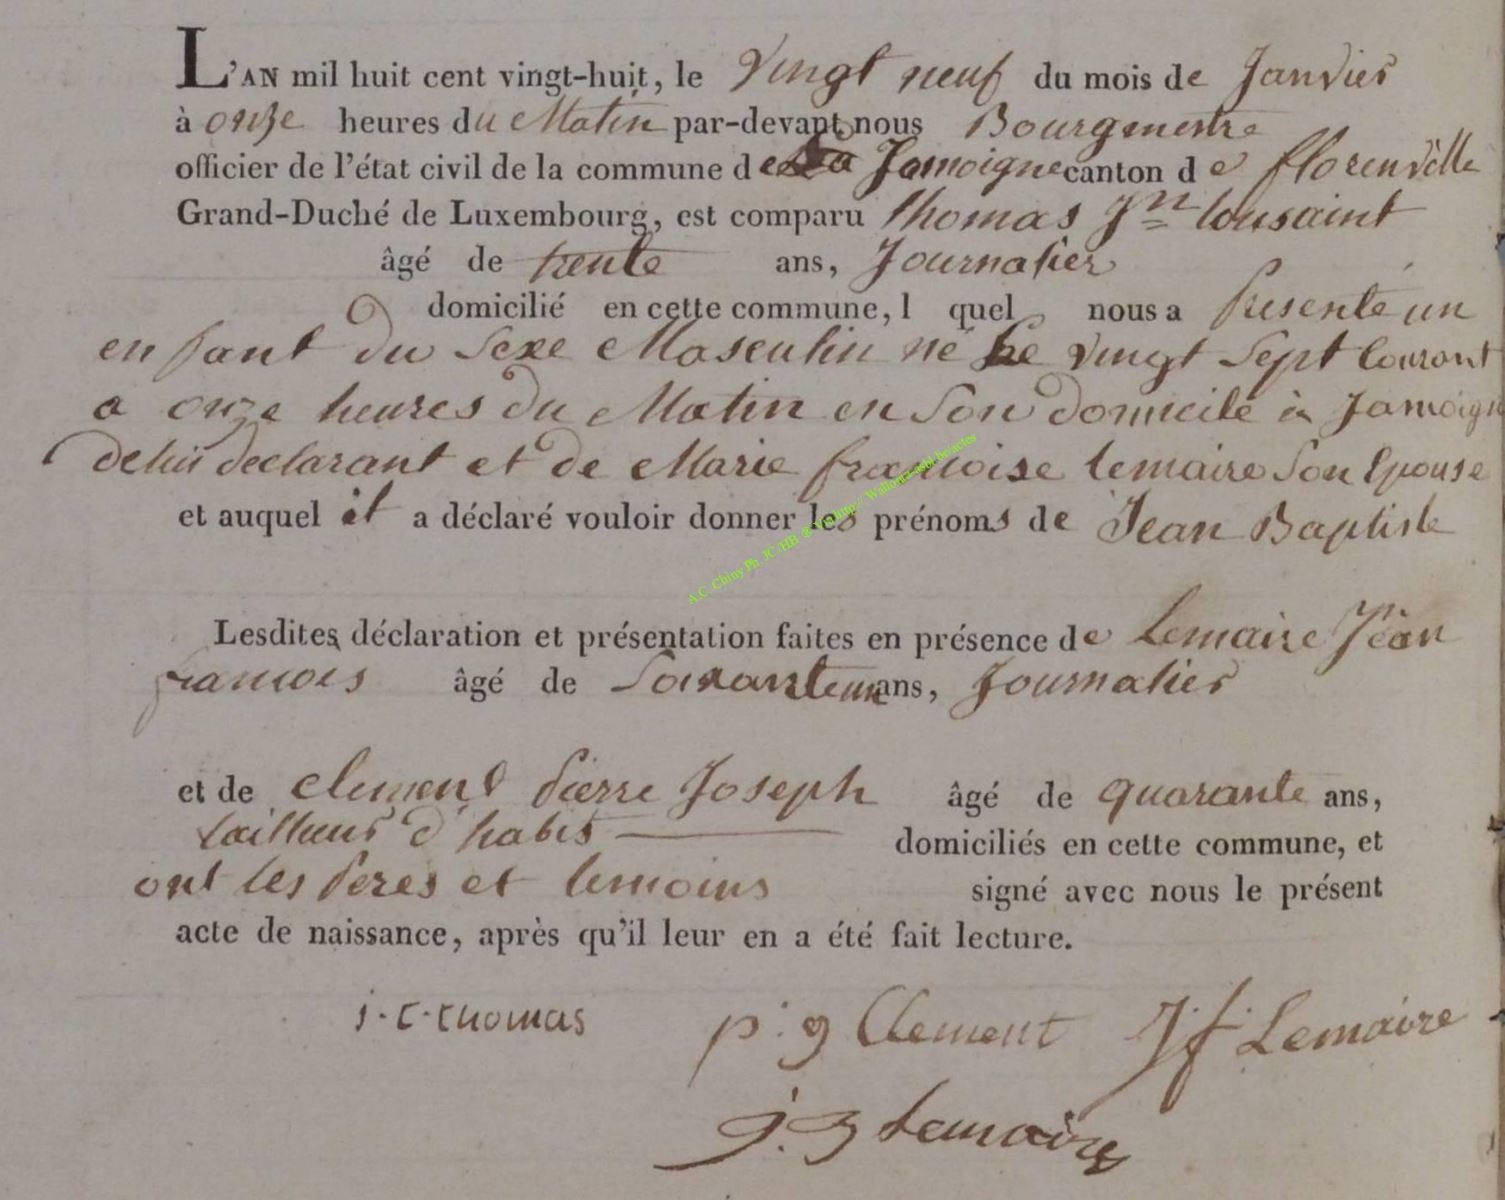 L'AN mil huit cent vingt-huit, le vingt neuf du mois de Janvier
à onze heures du Matin par-devant nous Bourgmestre
officier de l'état civil de la commune de Jamoigne canton de florenville
Grand-Duché de Luxembourg, est comparu thomas Jn tousaint
âgé de trente ans, Journalier
domicilié en cette commune, l quel nous a présenté un
enfant du Sexe Masculin né le vingt Sept Courant
a onze heures du Matin en Son domicile à Jamoigne
de lui declarant et de Marie francoise lemaire Son Epouse
et auquel il a déclaré vouloir donner les prénoms de Jean Baptiste
A.C. Chiny Ph. JC/HB ® Walonia-asbl.be/actes
Lesdites déclaration et présentation faites en présence de Lemaire Jean
francois âgé de Soixante un ans, Journalier
et de Clement Pierre Joseph âgé de quarante ans,
tailleur d'habis domiciliés en cette commune, et
ont les Peres et temoins signé avec nous le présent
acte de naissance, après qu'il leur en a été fait lecture.
j-t-thomas p:g Clement J f Lemaire
j. Lemaire